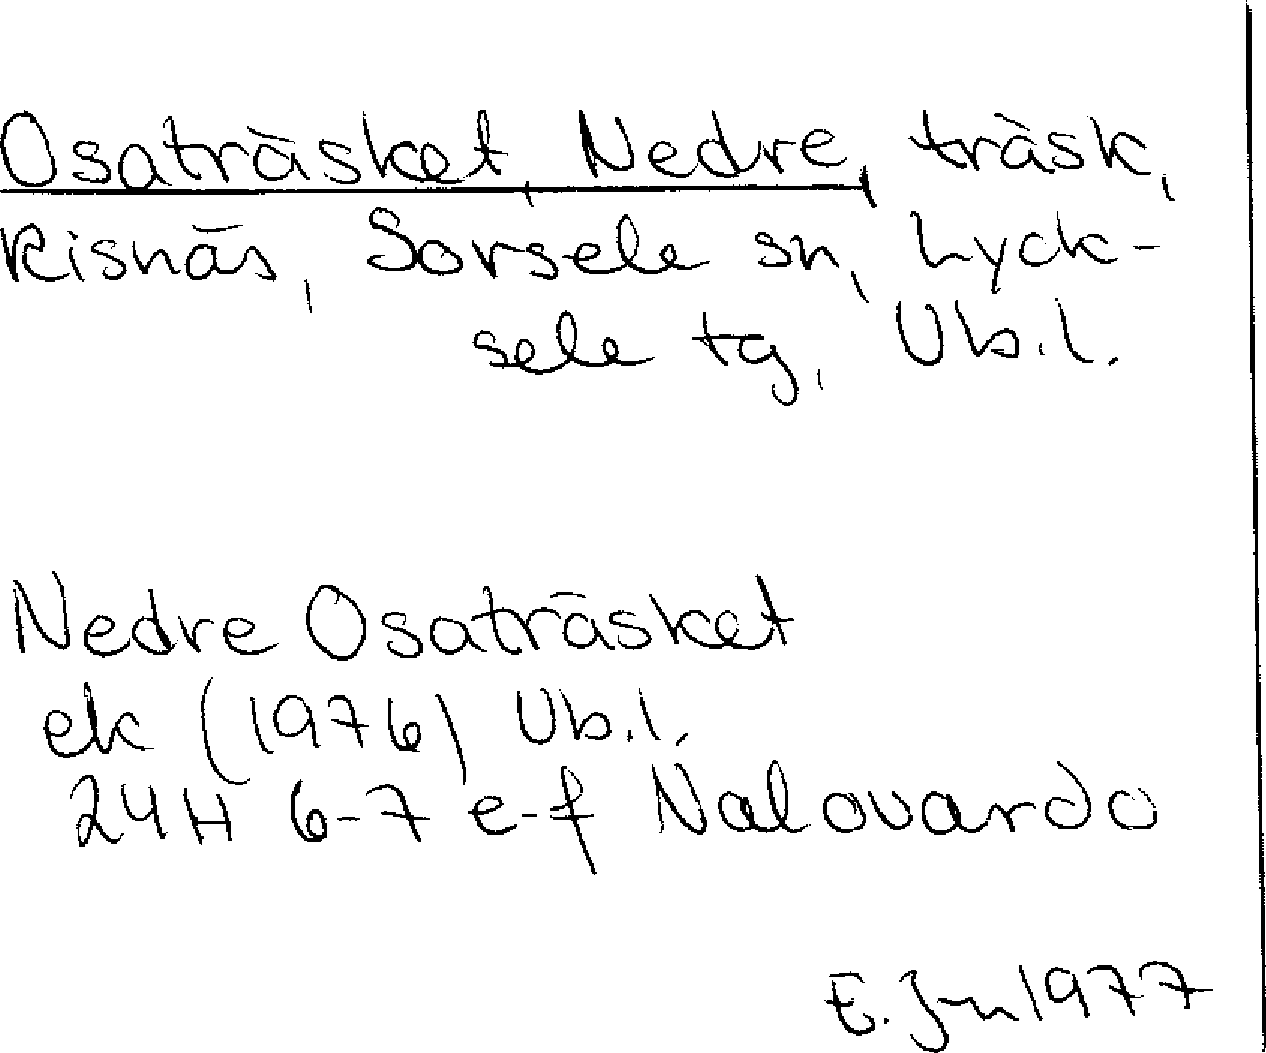 Osaträsket, Nedre, träsk,
Risnäs, Sorsele sn, Lyck-
sele tg, Vb.l.
Nedre Osaträsket
ek (1976) Vb.l.
24H 6-7 e-f Nalovardo
E. Jn 1977